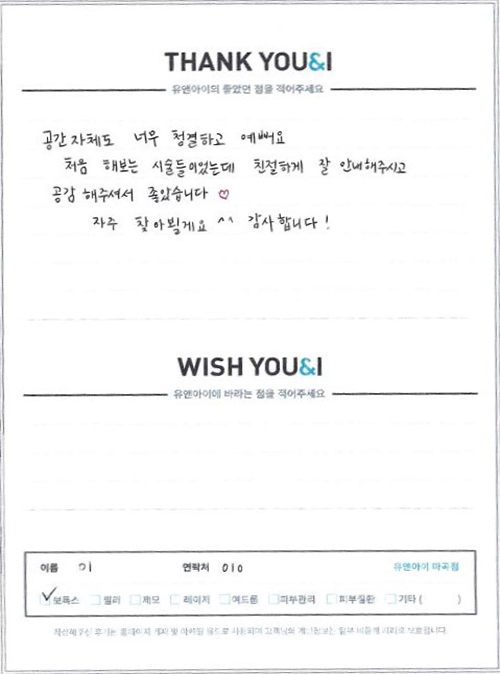 THANK YOU&I
유앤아이의 좋았던 점을 적어주세요
공간 자체도 너무 청결하고 예뻐요
처음 해보는 시술들이었는데 친절하게 잘 안내해주시고
공감 해주셔서 좋았습니다 ♡
자주 찾아뵐게요 ^^ 감사합니다!
WISH YOU&I
유앤아이에 바라는 점을 적어주세요
이름 이 연락처 010 유앤아이 마곡점
보톡스 필러 제모 레이저 여드름 피부관리 피부질환 기타 ( )